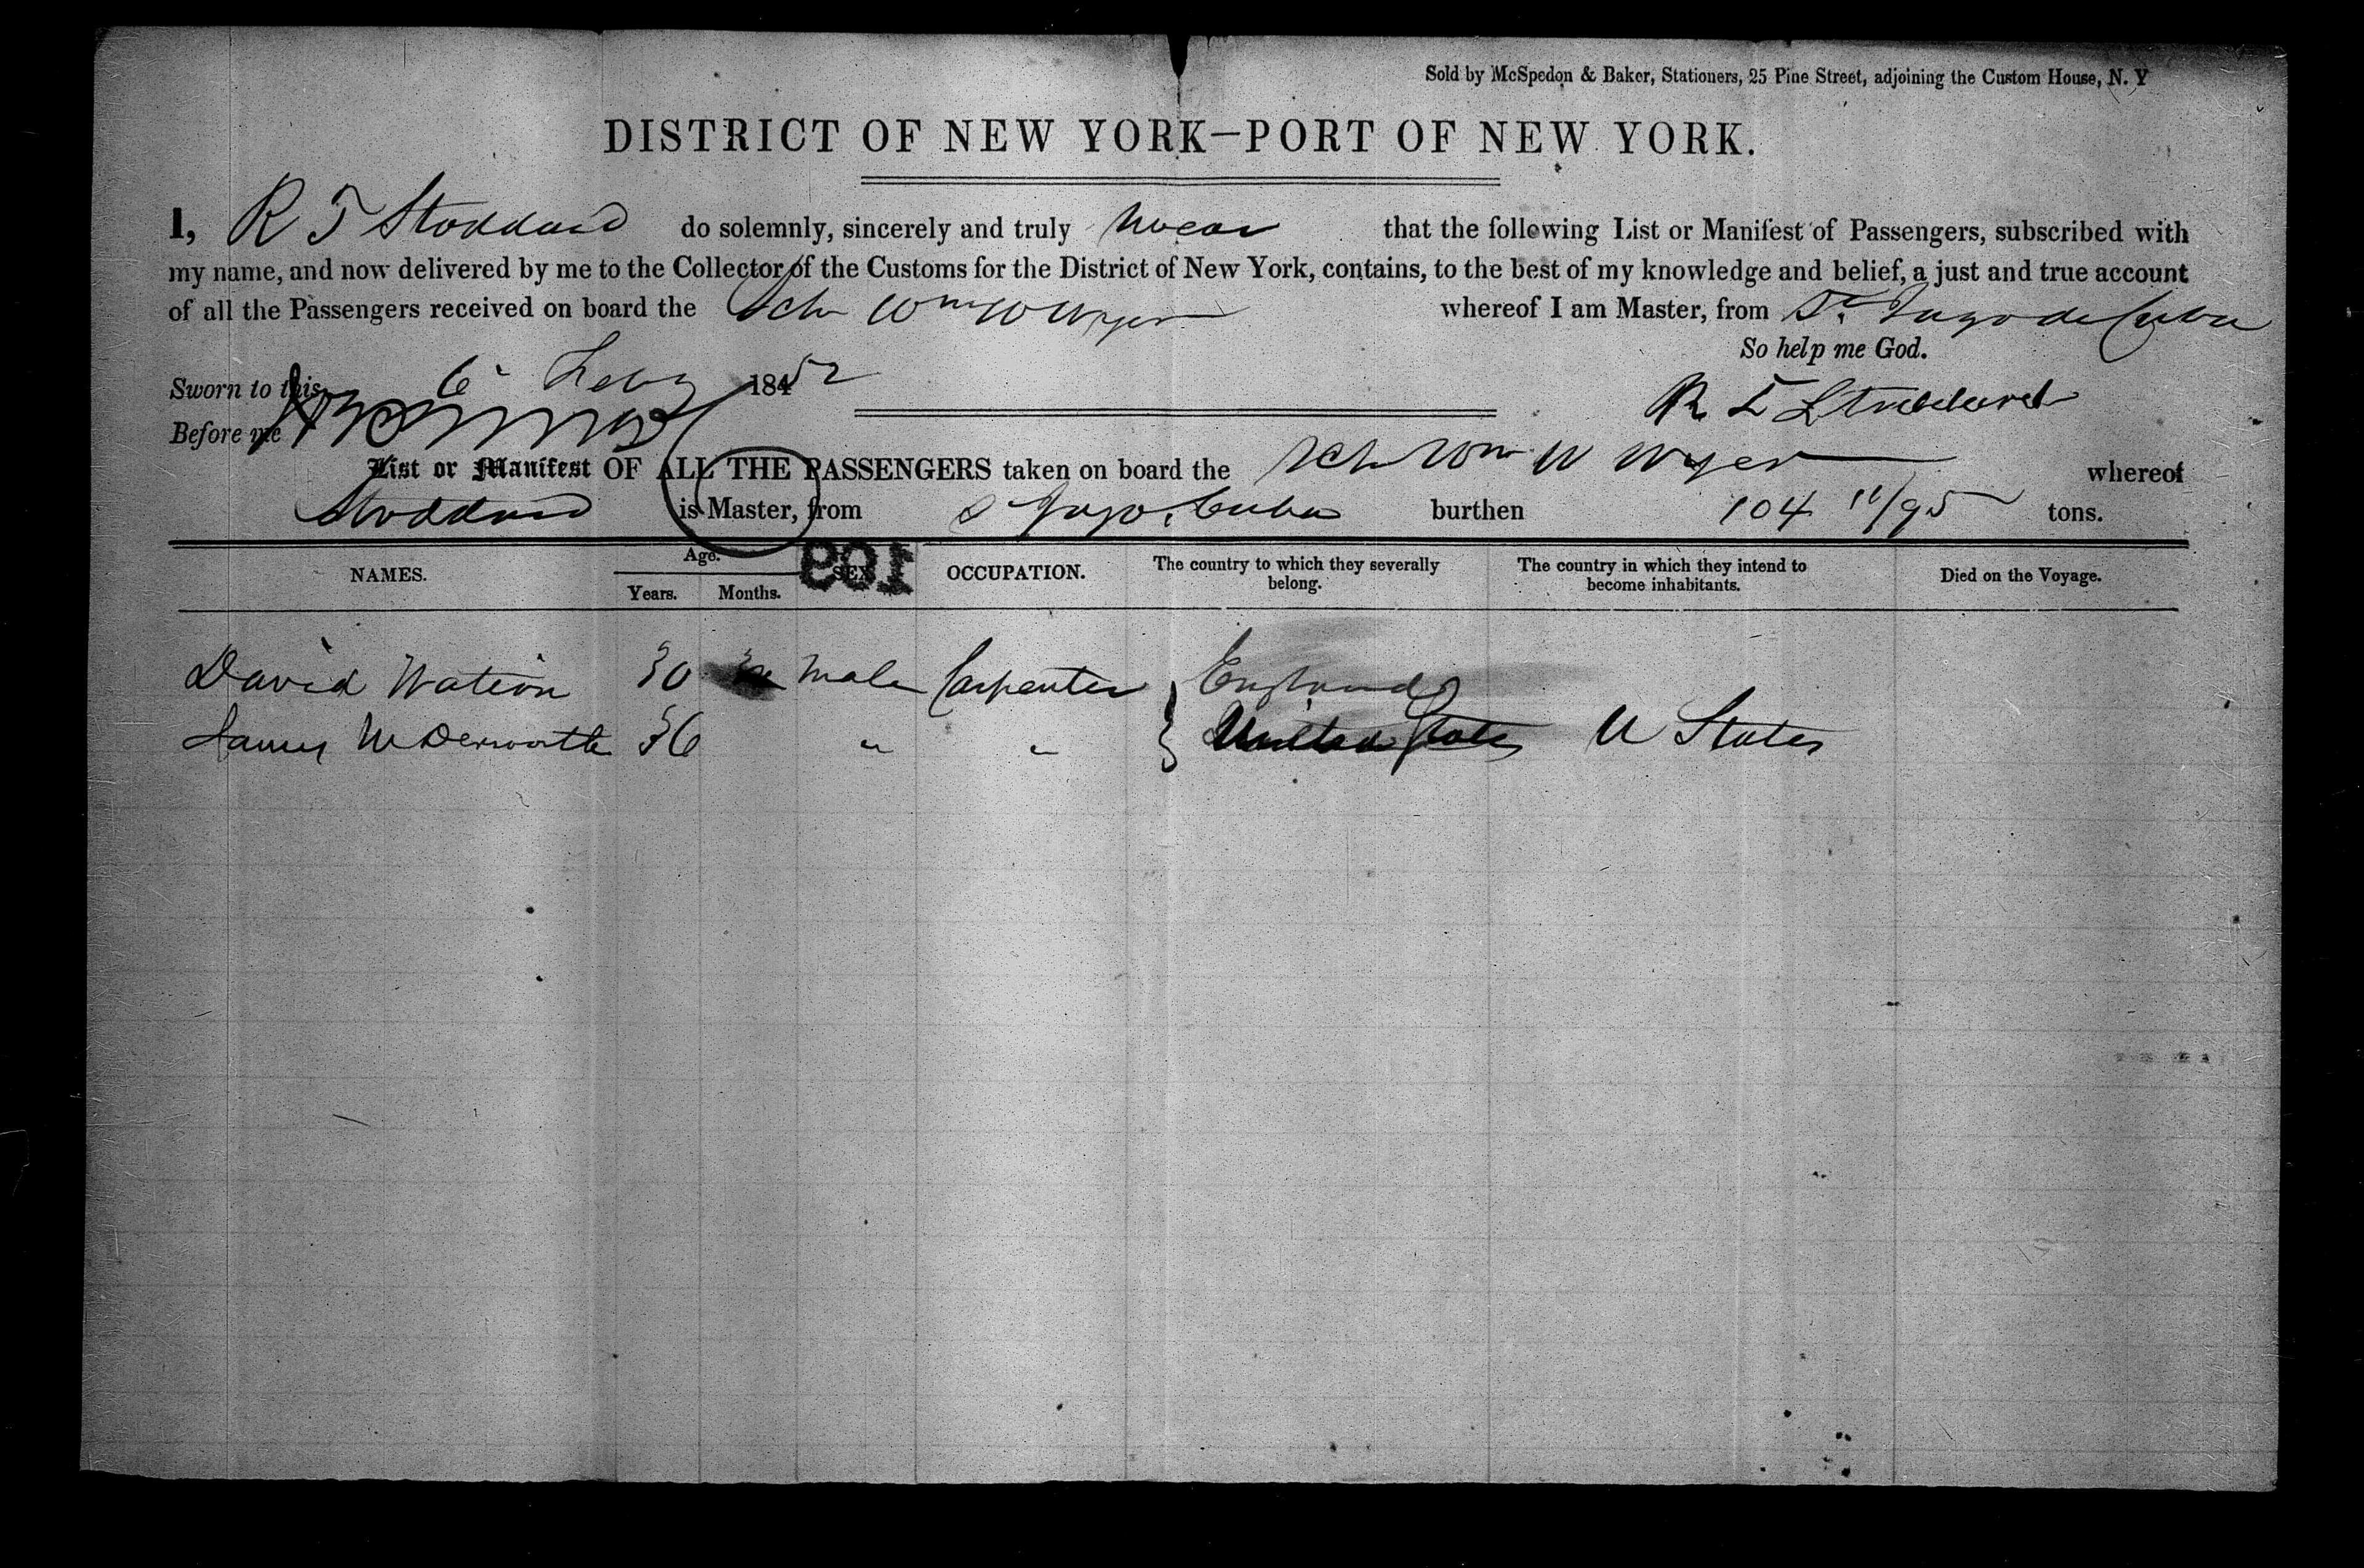 Sold by McSpedon & Baker, Stationers, 25 Pine Street, adjoining the Custom House, N. Y
DISTRICT OF NEW YORK—PORT OF NEW YORK.
I, R T Stoddard do solemnly, sincerely and truly swear that the following List or Manifest of Passengers, subscribed with
my name, and now delivered by me to the Collector of the Customs for the District of New York, contains, to the best of my knowledge and belief, a just and true account
of all the Passengers received on board the Sch Wm W Wyer whereof I am Master, from St Jago de Cuba
So help me God.
Sworn to this 6 Feby 18452
R T Stoddard
Before me
List or Manifest OF ALL THE PASSENGERS taken on board the Sch Wm W Wyer whereof
Stoddard is Master, from S Jago, Cuba burthen 104 11/95 tons.
NAMES. Age. SEX OCCUPATION. The country to which they severally belong. The country in which they intend to become inhabitants. Died on the Voyage.
Years. Months.
109
David Watson 30 male Carpenter } England
James 36 " " } United States U States